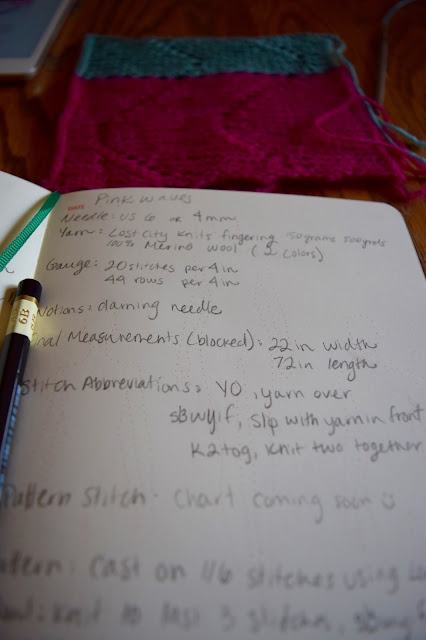 DATE Pink Waves
Needle: US 6 or 4mm
Yarn: Lost City Knits fingering 150grams 500yrds
100% Merino Wool (2 Colors)
Gauge: 20 stitches per 4 in
44 rows per 4 in
Notions: darning needle
Measurements (blocked): 22 in width
72 in length
Stitch Abbreviations: YO, yarn over
sl3wyif, slip with yarn in front
K2tog, knit two together
Pattern Stitch - Chart coming soon
cast on 116 stitches using
knit to last 3 stitches,
6B